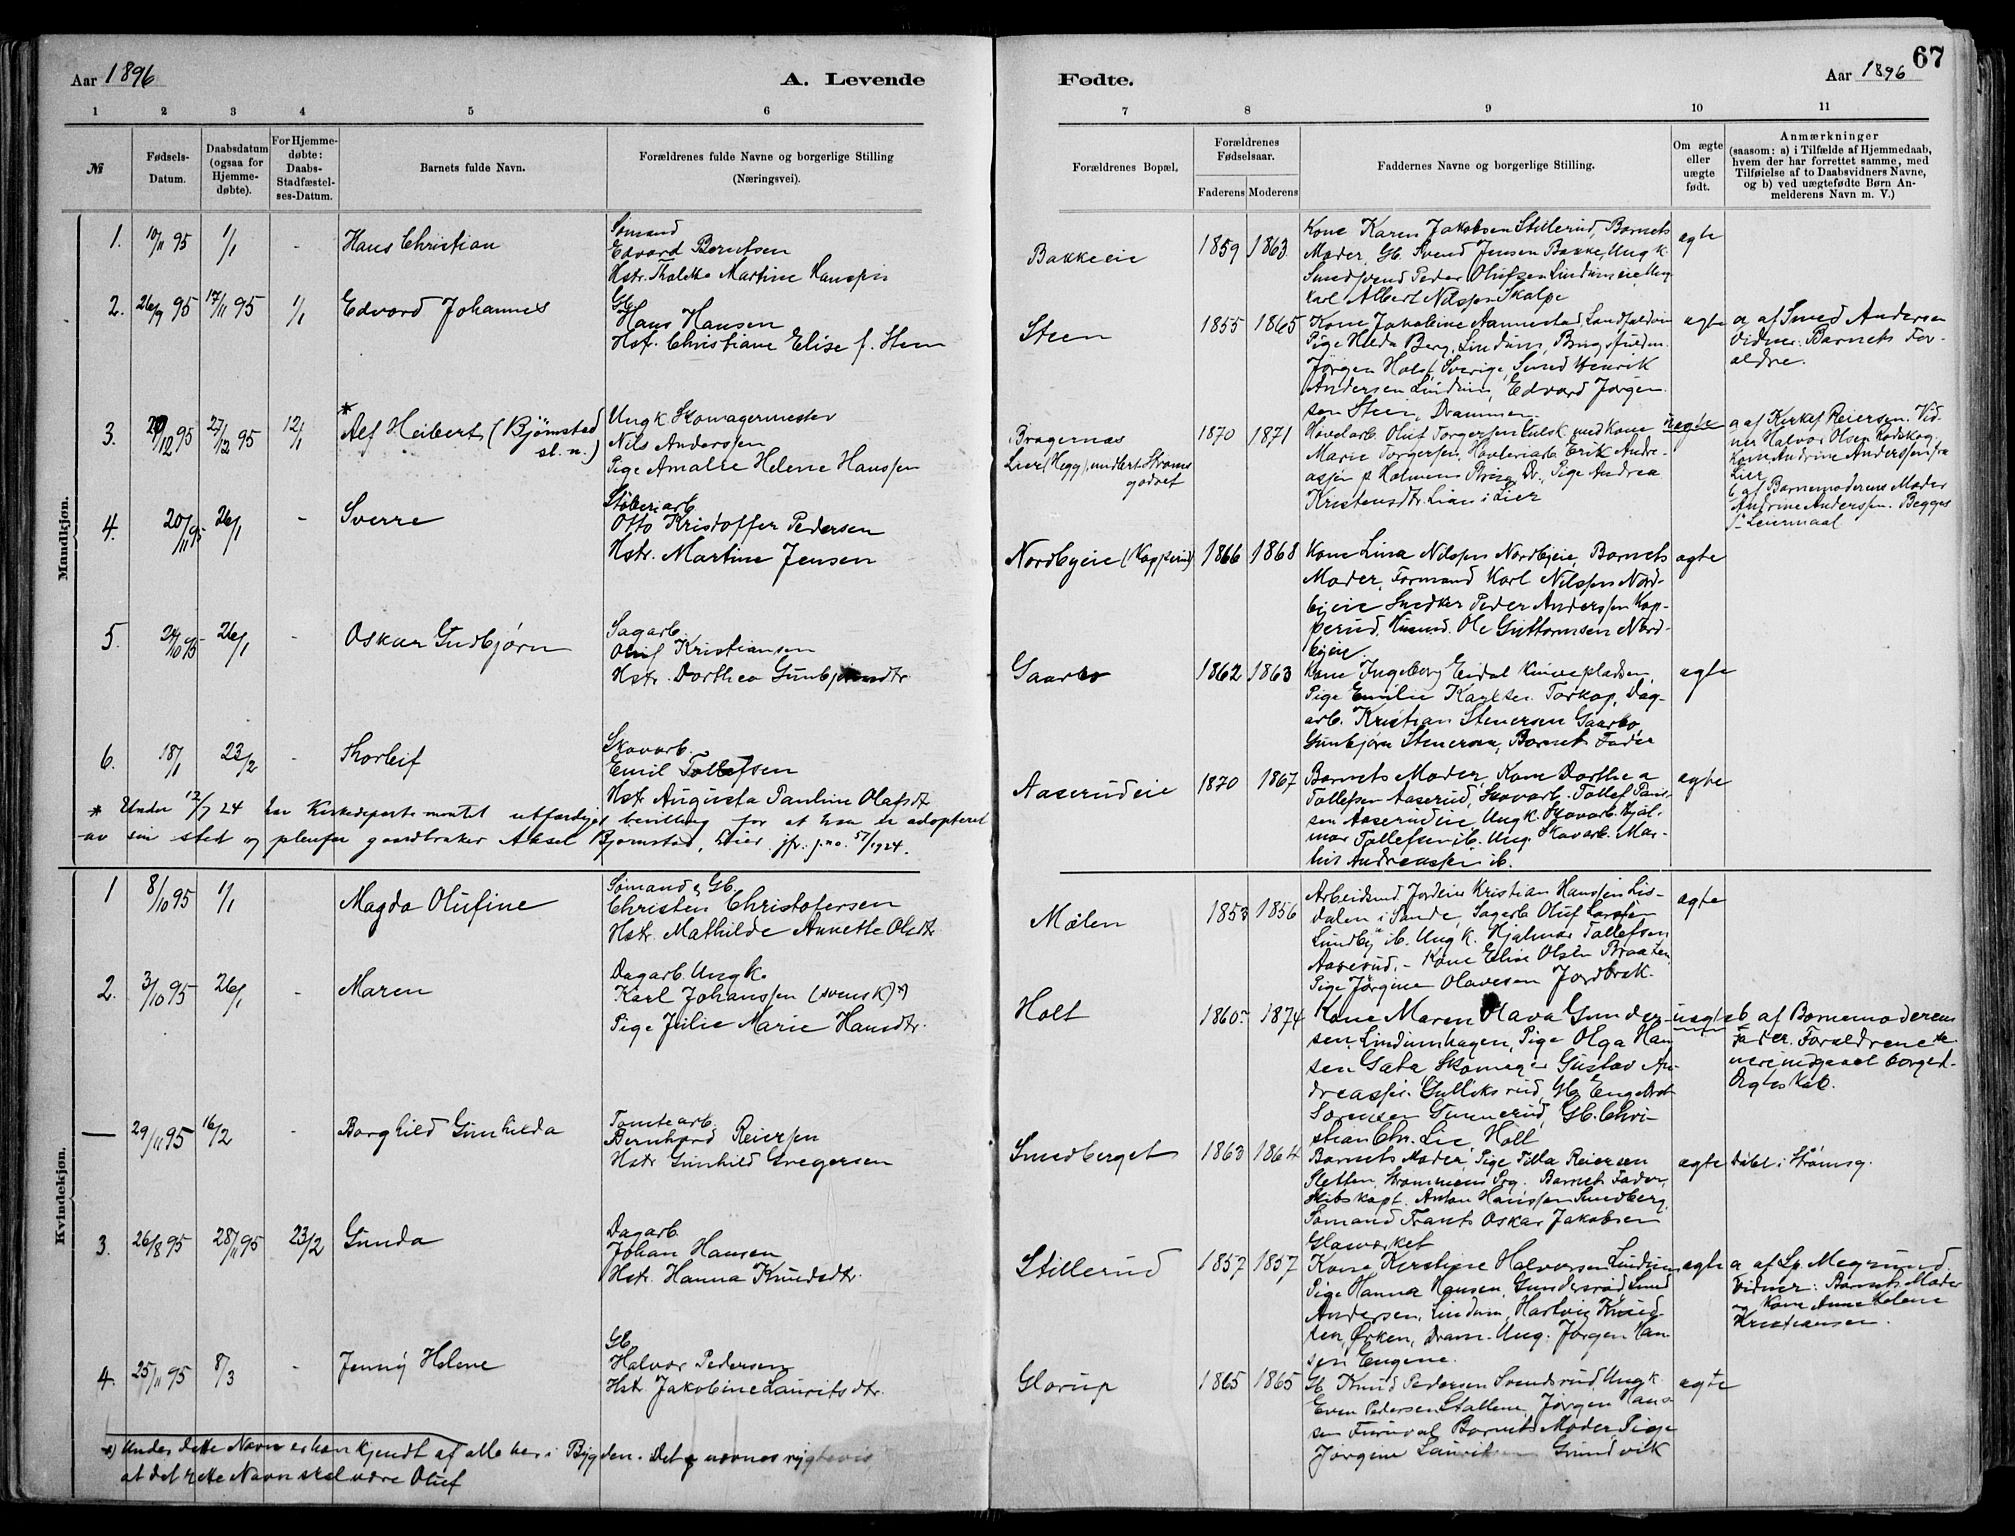 Aar 1896
A. Levende
Fødte.
Aar 1896
67
1 2 3 4 5 6 7 8 9 10 11
№
Fødsels-
Datum.
Daabsdatum
(ogsaa for
Hjemme-
døbte).
For Hjemme-
døbte:
Daabs-
Stadfæstel-
ses-Datum.
Barnets fulde Navn.
Forældrenes fulde Navne og borgerlige Stilling
(Næringsvei).
Forældrenes Bopæl.
Forældrenes
Fødselsaar.
Faderens Moderens
Faddernes Navne og borgerlige Stilling.
Om ægte
eller
uægte
født.
Anmærkninger
(saasom: a) i Tilfælde af Hjemmedaab,
hvem der har forrettet samme, med
Tilføielse af to Daabsvidners Navne,
og b) ved uægtefødte Børn An-
melderens Navn m. V.)
Mandkjøn.
1. 10/11 95 1/1 - Hans Christian
Sømand
Edvard Berntsen
Hstr. Martine Hanssen
Bakkeeie 1859 1863
Kone Karen Jakobsen Stillerud, Barnets
Moder, Gb. Svend Jensen Bakke, Ungk.
Peder Olufsen Lindumeie, Ung
karl Albert Nilssen Skalpe
ægte
2. 26/9 95 17/11 95 1/1 Edvard Johannes
Gb.
Hans Hansen
Hst. Christiane Elise f. Steen
Steen 1855 1865
Kone Jakobine Aannestad, Landfaldøen
Pige Hilda Berg, Lindum, Brugsfuldm.
Jørgen Holst, Sverige, Smed Henrik
Andersen Lindum, Edvard Jørgen
sen Steen, Drammen
ægte
a af Smed Andersen
Vidner: Barnets For-
ældre.
3. 27/12 95 12/1 * Alf Heibert (Bjørnstad
sl. n.)
Ungk Skomagermester
Nils Anderssen
Pige Amalie Helene Hanssen
Bragernæs
Lier (Hegg), under Strøms
godset
1870 1871
Høvelarb. Oluf Torgersen Tulsk med Kone
Marie Torgersen, Høvleriarb. Erik Andre-
assen p Holmens Brug, Dr., Pige Andrea
Kristensdtr. Lian i Lier
uægte
a af Kirkef Reiersen. Vid-
ner Halvor Olsen Rødskog
Kone Andrine Anderssen fra
Lier
b af Barnemoderens Moder
Andrine Anderssen. Begges
1ste Leiermaal
4. 20/11 95 26/1 - Sverre
Støberiarb
Otto Kristoffer Pedersen
Hstr. Martine Jensen
Nordbyeie (Kopperud) 1866 1868
Kone Lina Nilssen Nordbyeie, Barnets
Moder, Formand Karl Nilssen Nord-
byeie Snedker Peder Anderssen Kop-
perud, Husmd. Ole Guttormsen Nord-
byeie
ægte
5. 24/10 95 26/1 - Oskar Gudbjørn
Sagarb.
Oluf Kristiansen
Hstr. Dorthea Gunbjørnsdtr.
Gaarbo 1862 1863
Kone Ingeborg Eidal Kinnepladsen,
Pige Emilie Karlsen Torkop, Dag-
arb. Kristian Stenersen Gaarbo,
Gunbjørn Stenersen, Barnets Fader
ægte
6. 18/1 23/2 - Thorleif
Skovarb.
Emil Tollefsen
Hstr Augusta Pauline Olafsdt
Aaserudeie 1870 1867
Barnets Moder, Kone Dorthea
Tollefsen Aaserud, Skovarb. Tollef Paul-
sen Aaserudeie Ungk. Skovarb. Hjal-
mar Tollefsen ib. Ung. Skovarb. Mar-
tin Andreassen ib.
ægte
* Under 12/7 24 har Kirkedepartementet utfærdiget bevilling for at han er adopteret
av sin sted og pleiefar gaardbruker Aksel Bjørnstad, Lier. jfr. j.no. 57/1924.
Kvindekjøn.
1 8/10 95 1/1 Magda Olufine
Sømand & Gb.
Christen Christofersen
Hstr. Mathilde Annette Olsdtr.
Mølen 1853 1856
Arbeidsmd Jordeier Kristian Hanssen Lis-
dalen i Sande, Sagarb. Oluf Larssen
Lundby ib. Ungk. Hjalmar Tollefsen
Aaserud, - Kone Elise Olsen Braaten,
Pige Jørgine Olavesen Jordbræk.
ægte
2. 3/10 95 26/1 - Maren
Dagarb. Ungk.
Karl Johanssen (svensk) *)
Pige Julie Marie Hansdtr.
Holt 1860 1874
Kone Maren Olava Gunder-
sen, Lindumhagen, Pige Olga Han
sen Gata, Skomager Gustav An
dreassen Gulliksrud, Gb. Engebret
Sørensen Gunnerud, Gb. Chri-
stian Chr. Lie Holt
uægte
b af Barnemoderens
Fader. Forældrene
nu indgaaet borgerl.
Ægteskab.
— 29/11 95 16/2 - Borghild Gunhilda
Tomtearb.
Bernhard Reiersen
Hstr Gunhild Gregersen
Smedberget 1863 1864
Barnets Moder, Pige Tilla Reiersen
Sletten, Strømmens Prg. Barnets Fader,
Skibskapt. Anton Hanssen Smedberg,
Sømand Frants Oskar Jakobsen
Glasværket
ægte
Døbt i Strømsg.
3. 26/8 95 28/11 95 23/2 Gunda
Dagarb.
Johan Hansen
Hstr. Hanna Knudsdtr.
Stillerud 1857 1857
Kone Kirstine Halvorsen Lindum
Pige Hanna Hansen, Gundersrød Smed
Andersen, Lindum, Hartvig Knud-
sen, Ørken, Dram. Ung. Jørgen Han
sen Eugene.
ægte
a af Sp. Megrund
Vidner: Barnets Moder
og Kone Anne Helene
Kristiansen.
4. 25/11 95 8/3 - Jenny Helene
Gb.
Halvor Pedersen
Hstr. Jakobine Lauritsdtr.
Glorup 1865 1865
Gb. Knud Pedersen Svendsrud, Ungk
Even Pedersen Stallene, Jørgen Hans
sen Furuval, Barnets Moder, Pige
Jørgine Lauritsen Grundvik
ægte
*) Under dette Navn er han kjendt af alle her i Bygden. Det nævnes rygtevis
at det rette Navn skal være Oluf